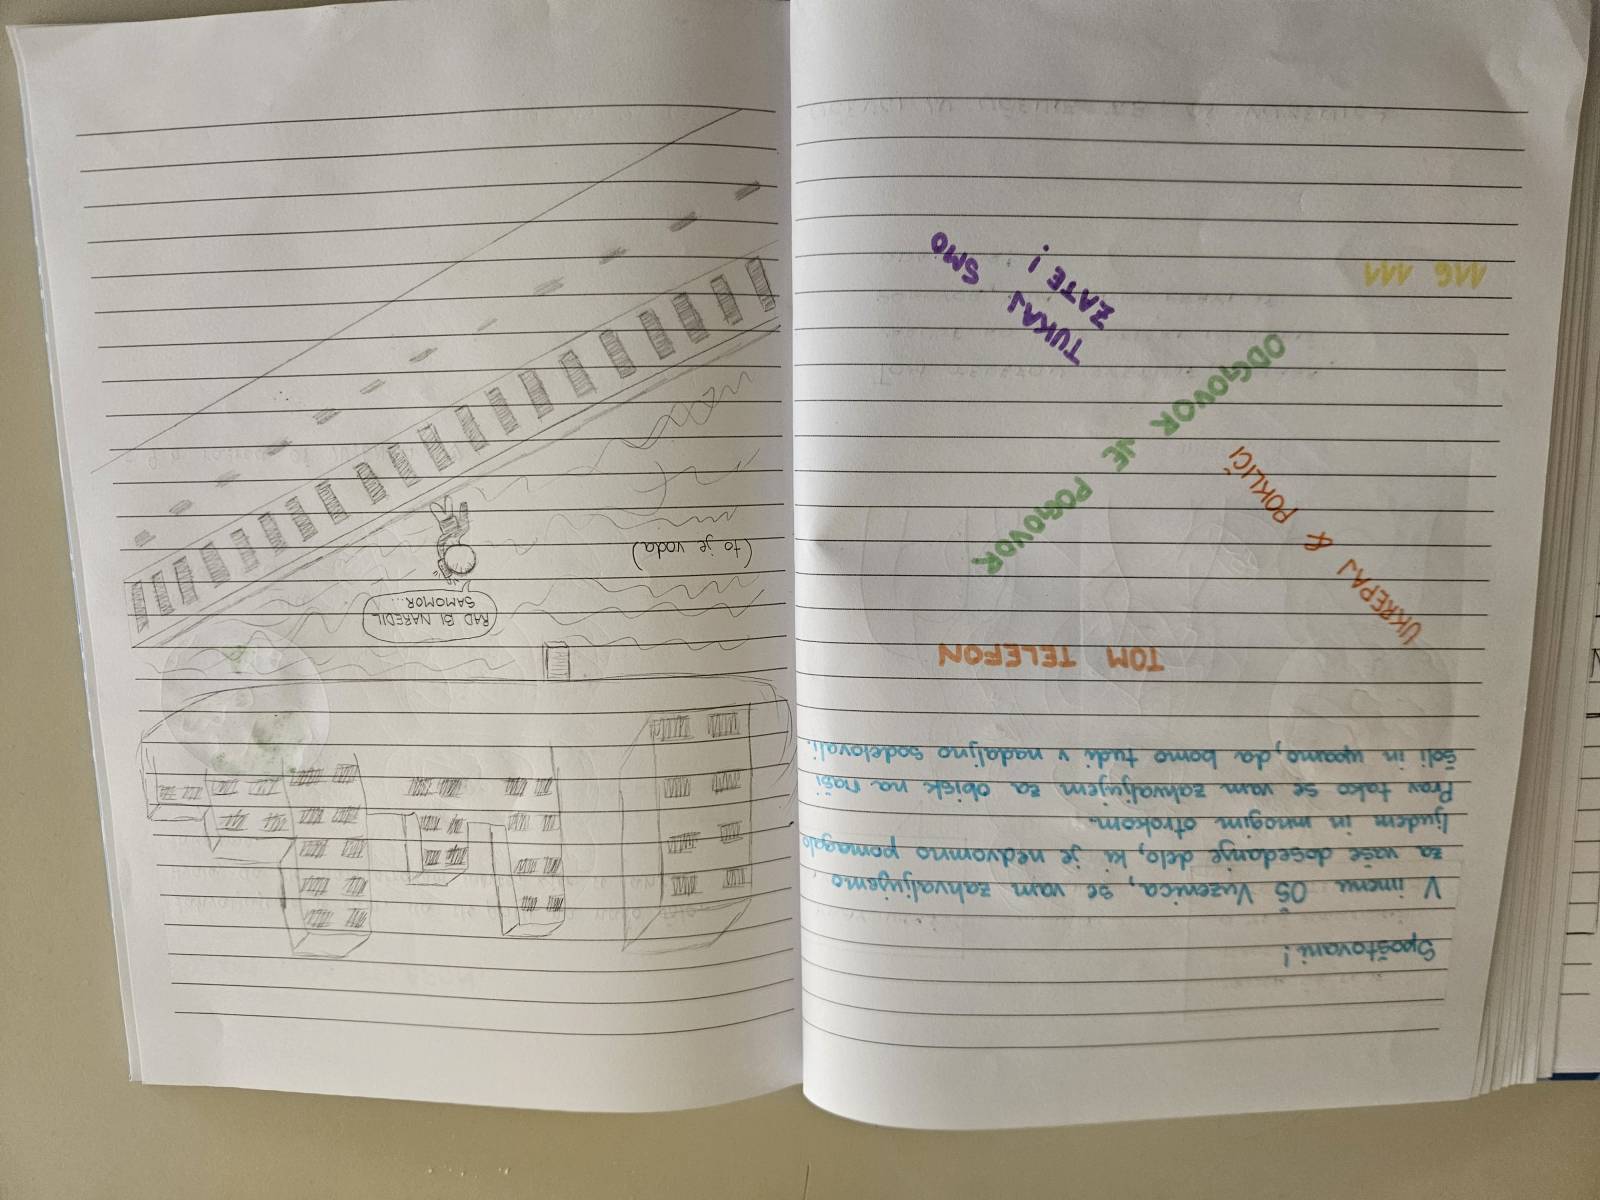 Spoštovani!
V imenu OŠ Vuzenica, se vam zahvaljujemo
za vaše dosedanje delo, ki je nedvomno pomagalo
ljudem in mnogim otrokom.
Prav tako se vam zahvaljujem za obisk na naši
šoli in upamo, da bomo tudi v nadaljno sodelovali.
TOM TELEFON
UKREPAJ & POKLIČI
ODGOVOR JE POGOVOR
TUKAJ SMO
ZATE!
116 111
RAD BI NAREDIL
SAMOMOR...
(to je voda)